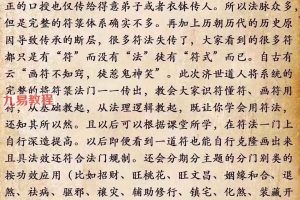 正的口授也仅传给得意弟子或者衣体传人。所以法脉众多,
但是完整的符箓体系确实不多。再加上历朝历代的历史原
因导致传承的断层,很多符法失传了,大家看到的很多符
都只是有“符”而没有“法”徒有“符式”而已。自古有
云“画符不知窍,徒惹鬼神笑”。此次济世道人将系统的
完整的将符箓法门一一传出,教会大家识符懂符、画符用
符,从基础教起,从法理逻辑教起,既让你学会用符法,还
知其所以然。且以后可以根据课堂所学,在符法一门上
自行深造提高。以后即便看到一道符也能自行克隆画出来
且具法效还符合法门规制。还会分期分主题的分门别类的
按功效应用(比如招财、旺桃花、旺文昌、姻缘和合、退
煞、祛病、驱邪、禳灾、辅助修行、镇宅、化煞、装藏开
九易教程